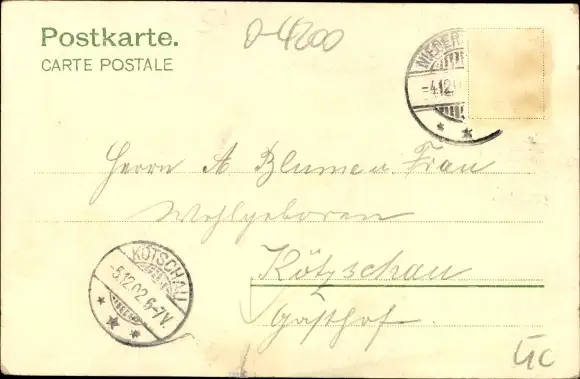 Postkarte.
CARTE POSTALE
0-4200
WIEDER
-4.12.
Herrn A Blume u. Frau
Wohlgeboren
Kötzschau
Gasthof.
KÖTSCHAU
-5.12.02.6-7V.